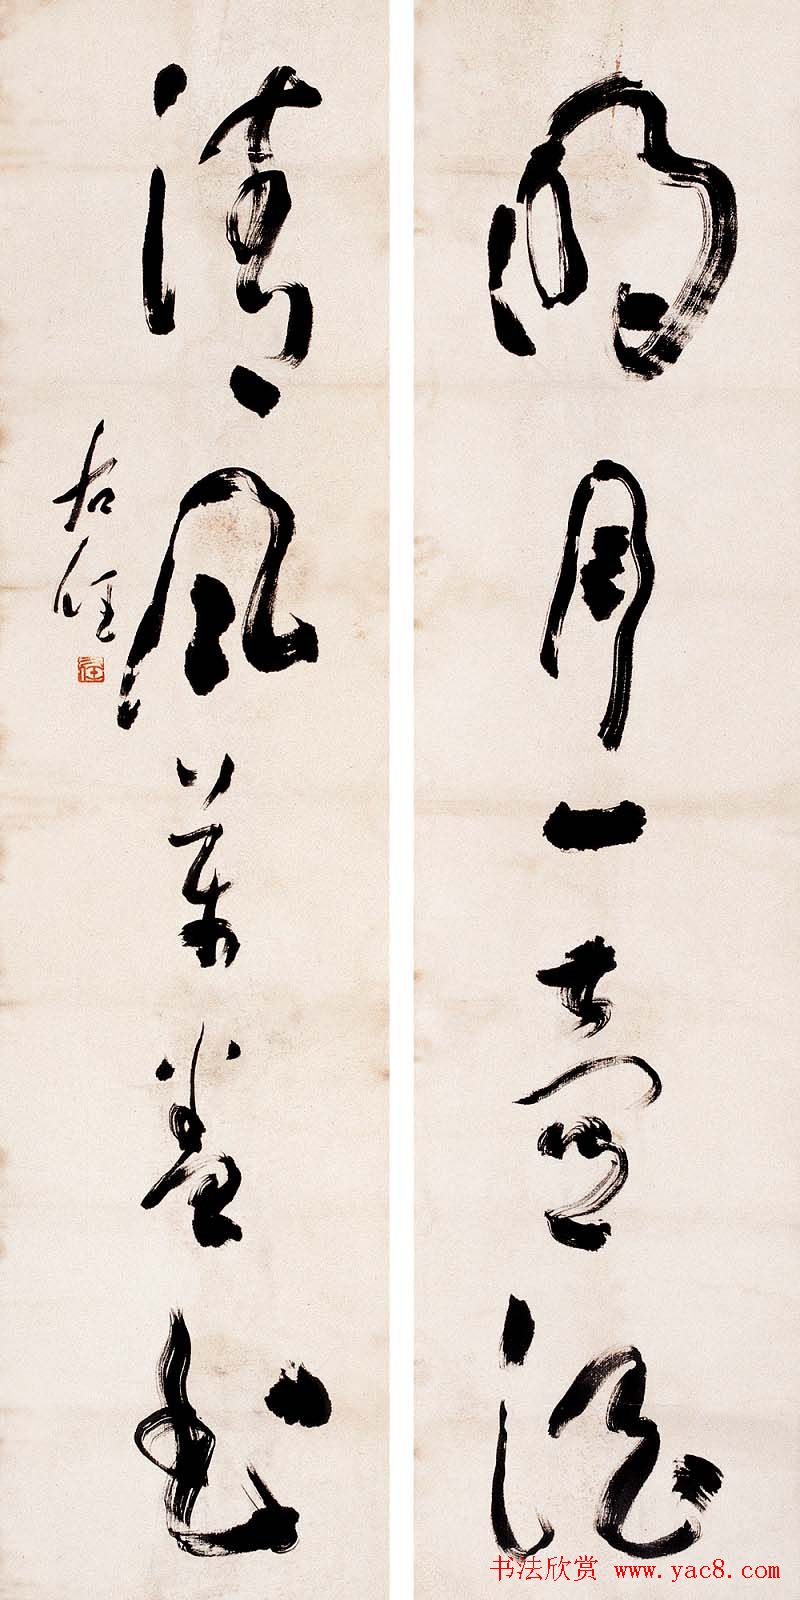 明月一壺酒
清風萬卷書
右任
書法欣赏 www.yac8.com